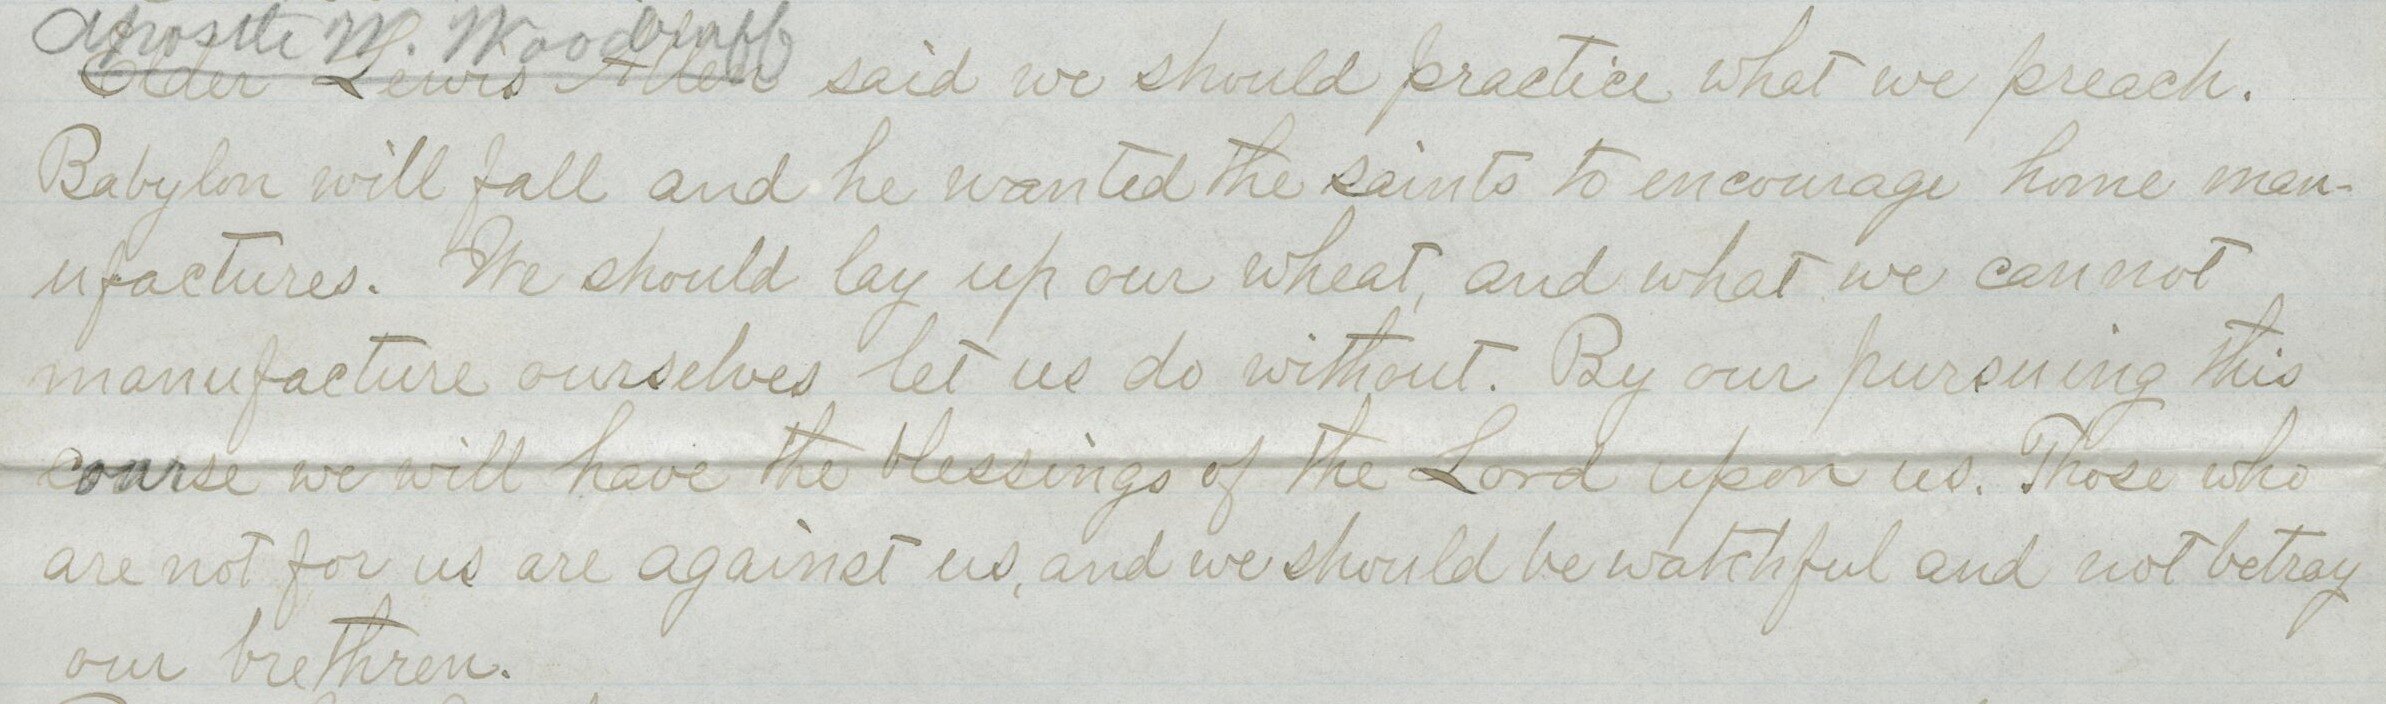 Apostle W. Woodruff
Elder Lewis Allen said we should practice what we preach.
Babylon will fall and he wanted the saints to encourage home man-
ufactures. We should lay up our wheat, and what we cannot
manufacture ourselves let us do without. By our pursuing this
course we will have the blessings of the Lord upon us. Those who
are not for us are against us, and we should be watchful and not betray
our brethren.